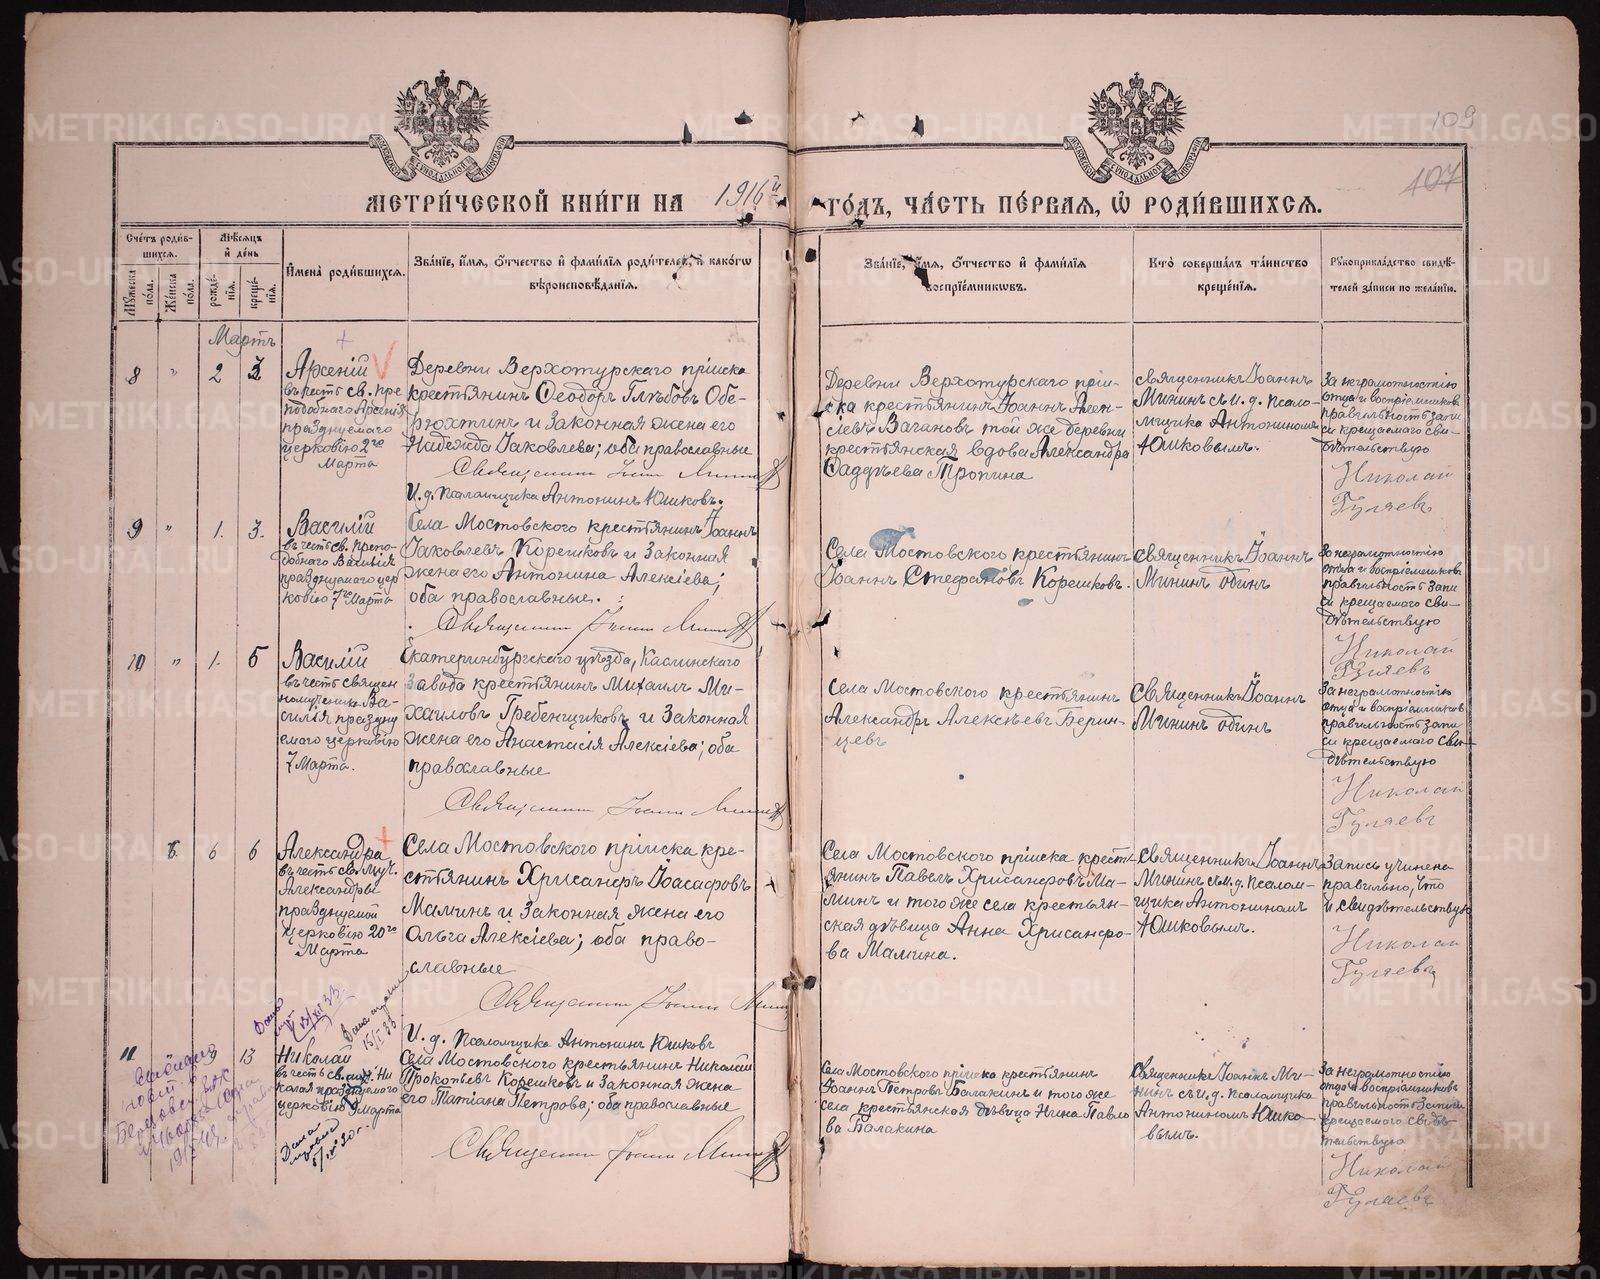 109
107
МОСКОВСКОЙ СИНОДАЛЬНОЙ ТИПОГРАФІИ
МОСКОВСКОЙ СИНОДАЛЬНОЙ ТИПОГРАФІИ
МЕТРИ́ЧЕСКОЙ КНИ́ГИ НА 1916й
ГО́ДЪ, ЧА́СТЬ ПЕ́РВАЯ, Ѡ РОДИ́ВШИХСЯ.
Счетъ роди́в-
шихся.
Мужеска по́ла.
Же́нска по́ла.
Мѣсяцъ
и де́нь
рожде́-
нія.
креще́-
нія.
Имена̀ роди́вшихся.
Зва́ніе, и́мя, о́тчество и фами́лія роди́телей, и како́гѡ
вѣроисповѣ́данія.
Зва́ніе, и́мя, о́тчество и фами́лія
воспріе́мниковъ.
Кто̀ соверша́лъ та́инство
креще́нія.
Рукоприкла́дство свидѣ́-
телей за́писи по жела́нію.
Мартъ
8 " 2 3
Арсеній
въ честь св. Пре
подобнаго Арсенія
празднуемаго
церковію 2го
Марта
Деревни Верхотурскаго пріиска
крестьянинъ Ѳеодоръ Глѣбовъ Обе-
рюхтинъ и законная жена его
Надежда Іаковлева; оба православные
Священникъ Іоаннъ Мининъ
И. д. Псаломщика Антонинъ Юшковъ.
Деревни Верхотурскаго прі-
иска крестьянинъ Іоаннъ Алек-
сіевъ Вагановъ той же деревни
крестьянская вдова Александра
Фаддѣева Тропина
Священникъ Іоаннъ
Мининъ съ И. д. Псало-
мщика Антониномъ
Юшковымъ.
За неграмотностію
отца и воспріемниковъ
правильность запи
си крещаемаго сви-
дѣтельствую
Николай
Гуляевъ
9 " 1. 3.
Василій
въ честь св. Препо-
добнаго Василія
празднуемаго цер
ковію 7го Марта
Села Мостовского крестьянинъ Іоаннъ
Іаковлевъ Корешковъ и законная
жена его Антонина Алексіева;
оба православные.
Священникъ Іоаннъ Мининъ
Села Мостовского крестьянинъ
Іоаннъ Стефановъ Корешковъ.
Священникъ Іоаннъ
Мининъ одинъ
За неграмотностію
отца и воспріемниковъ
правильность запи
си крещаемаго сви-
дѣтельствую
Николай
Гуляевъ
10 " 1. 5
Василій
въ честь священ
номученика Ва-
силія праздну
емаго церковію
7 Марта.
Екатеринбургскаго уѣзда, Каслинскаго
завода крестьянинъ Михаилъ Ми-
хаиловъ Гребенщиковъ и законная
жена его Анастасія Алексіева; оба
православные
Священникъ Іоаннъ Мининъ
Села Мостовского крестьянинъ
Александръ Алексѣевъ Берин-
цевъ
Священникъ Іоаннъ
Мининъ одинъ
За неграмотностію
отца и воспріемниковъ
правильность запи
си крещаемаго сви-
дѣтельствую
Николай
Гуляевъ
6. 6 6
Александра
въ честь св. Муч.
Александры
празднуемой
церковію 20го
Марта
Села Мостовского пріиска кре-
стьянинъ Хрисанфъ Іоасафовъ
Маминъ и законная жена его
Ольга Алексіева; оба право-
славные
Священникъ Іоаннъ Мининъ
И. д. Псаломщика Антонинъ Юшковъ
Села Мостовского пріиска кресть-
янинъ Павелъ Хрисанфовъ Ма-
минъ и того же села крестьян-
ская дѣвица Анна Хрисанфо-
ва Мамина.
Священникъ Іоаннъ
Мининъ съ И. д. Псалом-
щика Антониномъ
Юшковымъ.
Запись учинена
правильно, что
и свидѣтельствую
Николай
Гуляевъ
11 " 9 13
Николай
въ честь св. муч. Ни
калая празднуемаго
церковію 9 Марта
Села Мостовского крестьянинъ Николай
Прокопьевъ Корешковъ и законная жена
его Татіана Петрова; оба православные
Священникъ Іоаннъ Мининъ
Села Мостовского пріиска крестьянинъ
Іоаннъ Петровъ Балакинъ и того же
села крестьянская дѣвица Нина Павло
ва Балакина
Священникъ Іоаннъ Ми-
нинъ съ И. д. Псаломщика
Антониномъ Юшко-
вымъ.
За неграмотностію
отца и воспріемниковъ
правильность записи
крещаемаго свидѣ-
тельствую
Николай
Гуляевъ
15/I 33
METRIKI.GASO-URAL.RU